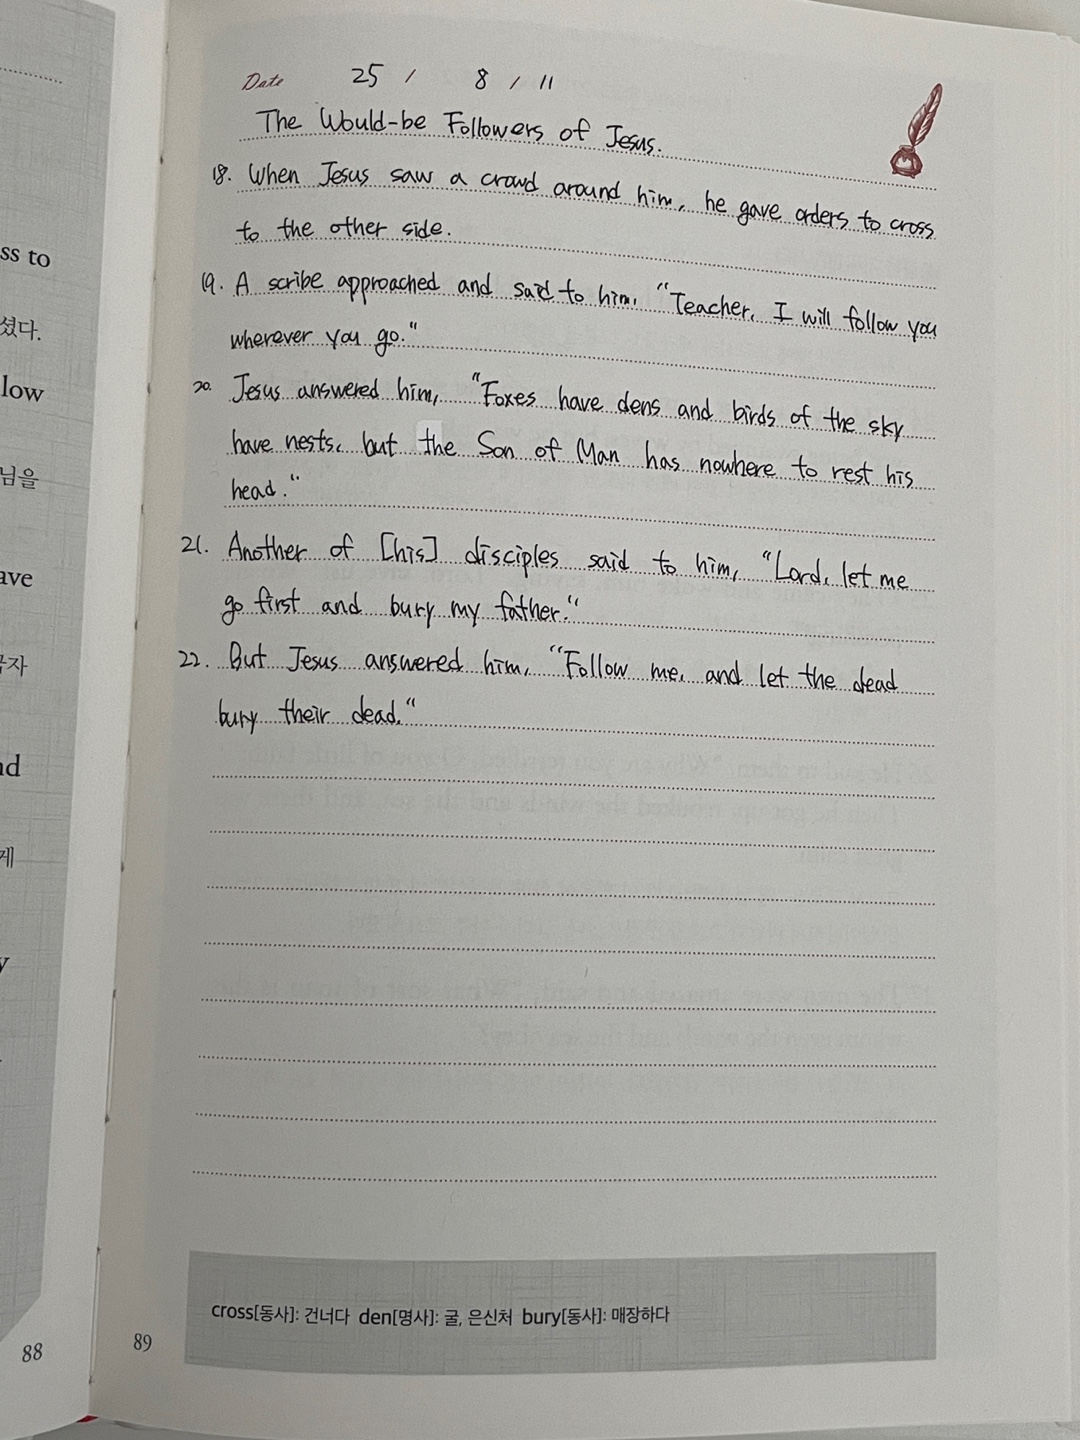 ss to
셨다.
low
님을
ave
nd
게
y
88
Date 25 / 8 / 11
The Would-be Followers of Jesus.
18. When Jesus saw a crowd around him, he gave orders to cross
to the other side.
19. A scribe approached and said to him, "Teacher, I will follow you
wherever you go."
20. Jesus answered him, "Foxes have dens and birds of the sky
have nests, but the Son of Man has nowhere to rest his
head."
21. Another of [his] disciples said to him, "Lord, let me
go first and bury my father."
22. But Jesus answered him, "Follow me, and let the dead
bury their dead."
cross[동사]: 건너다 den[명사]: 굴, 은신처 bury[동사]: 매장하다
89